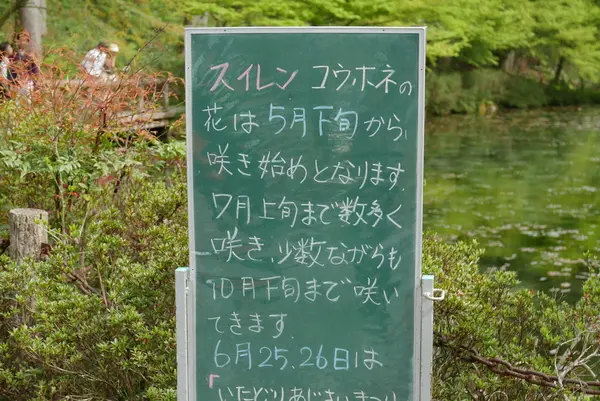 スイレン コウホネの
花は5月下旬から、
咲き始めとなります。
7月上旬まで数多く
咲き、少数ながらも
10月下旬まで咲い
てきます。
6月25.26日は
「いたどりあじさいまつり